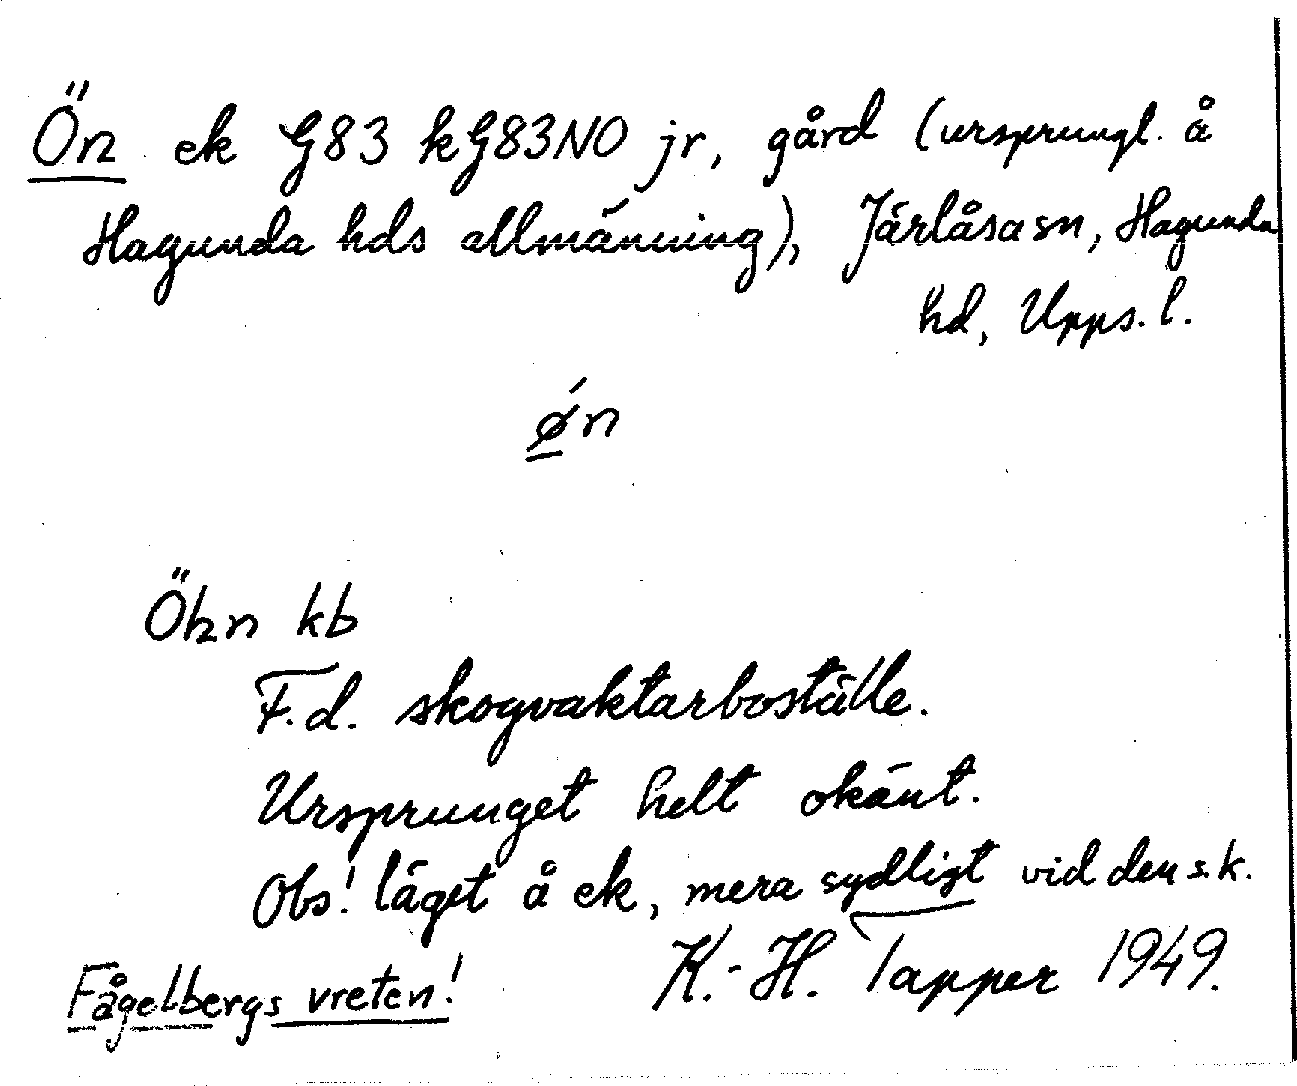 Ön ek G83 kG83NO jr, gård (ursprungl. å
Hagunda hds allmänning), Järlåsa sn, Hagunda
hd, Upps. l.
ǿn
Öhn kb
F.d. skogvaktarboställe.
Ursprunget helt okänt.
Obs! läget å ek, mera sydligt vid den s.k.
Fågelbergs vreten!
K.-H. Tapper 1949.